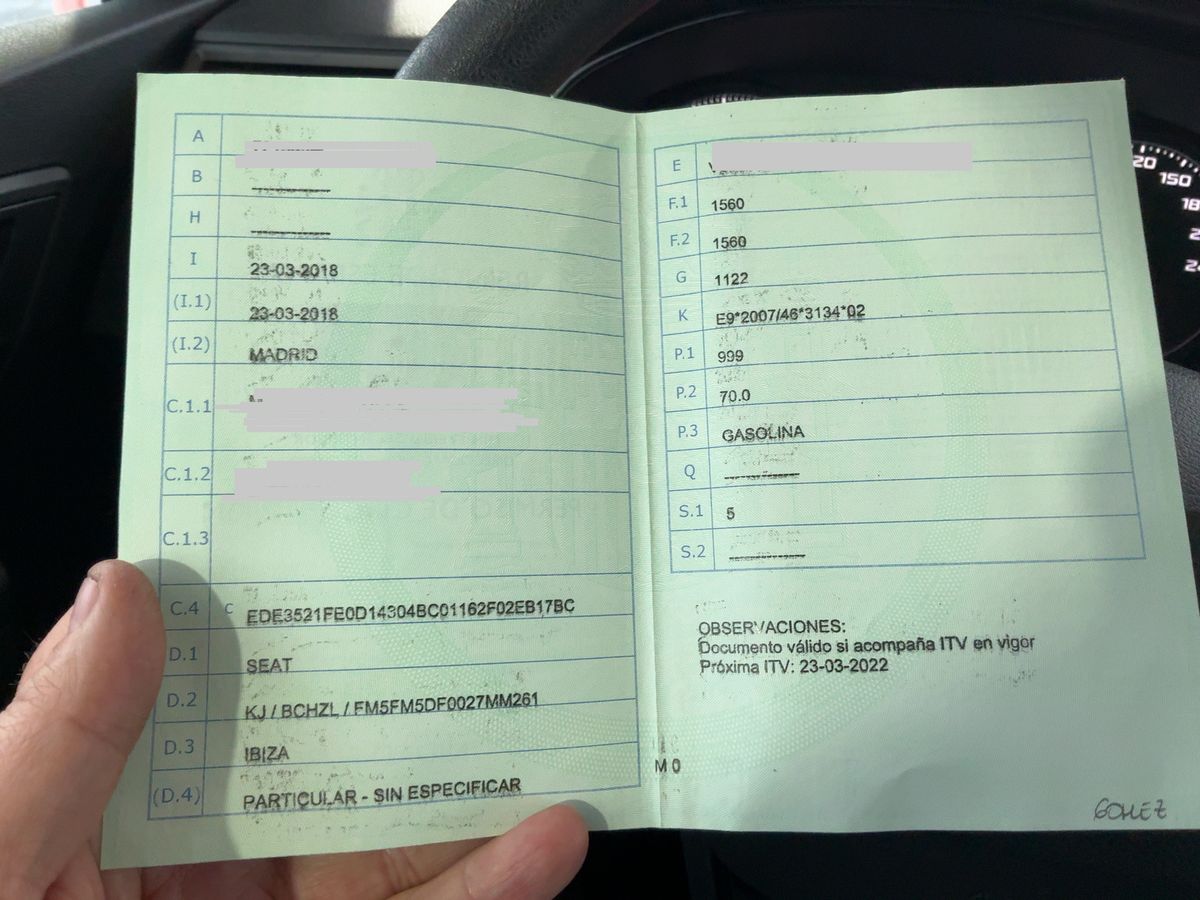 A
B
H
I 23-03-2018
(I.1) 23-03-2018
(I.2) MADRID
C.1.1
C.1.2
C.1.3
C.4 C EDE3521FE0D14304BC01162F02EB17BC
D.1 SEAT
D.2 KJ / BCHZL / FM5FM5DF0027MM261
D.3 IBIZA
(D.4) PARTICULAR - SIN ESPECIFICAR
E
F.1 1560
F.2 1560
G 1122
K E9*2007/46*3134*02
P.1 999
P.2 70.0
P.3 GASOLINA
Q
S.1 5
S.2
OBSERVACIONES:
Documento válido si acompaña ITV en vigor
Próxima ITV: 23-03-2022
M 0
GOMEZ
20
150